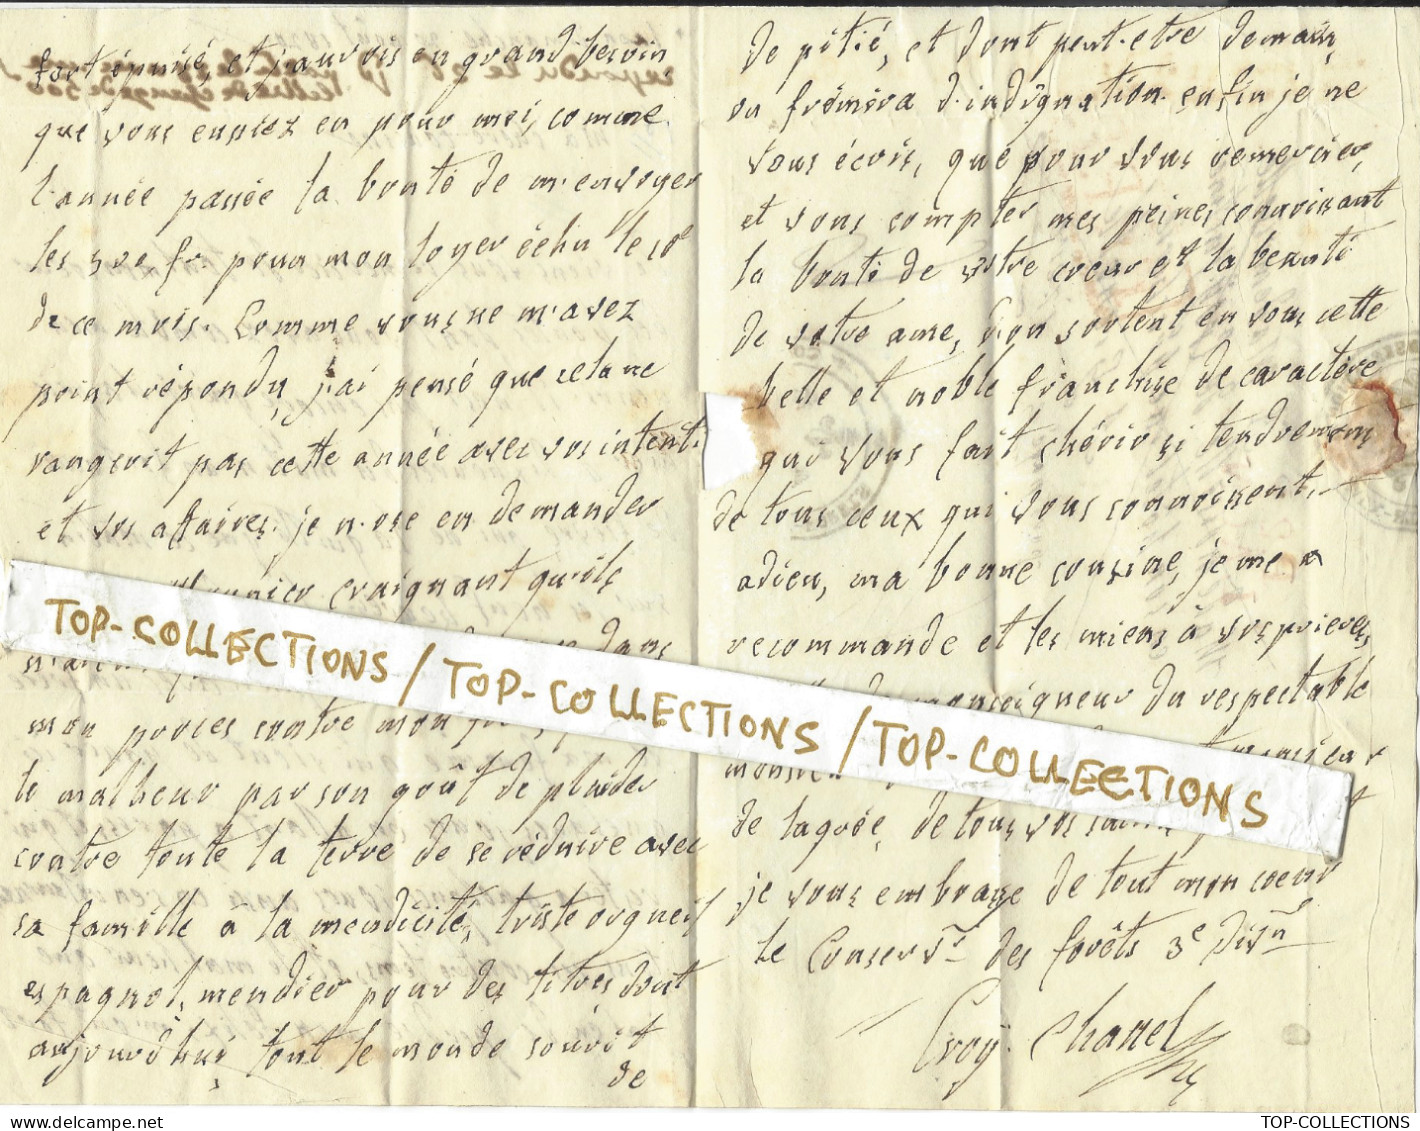 fort épuisé, et j'aurois en grand besoin
que vous eussiez eu pour moi, comme
l'année passée la bonté de m'envoyer
les 500 fr. pour mon loyer échu le 10e
de ce mois. Comme vous ne m'avez
point répondu, j'ai pensé que cela ne
rangeoit pas cette année avec vos intent.
et vos affaires. je n'ose en demander
craignant qu'ils
dans
mon procès contre mon
le malheur par son goût de plaider
contre toute la terre de se réduire avec
sa famille à la mendicité, triste orgueil
espagnol, mendier pour des titres dont
aujourd'hui tout le monde sourit
de
de pitié, et dont peut-etre demain,
on frémira d'indignation. enfin je ne
vous écris, que pour vous remercier,
et vous compter mes peines connoissant
la bonté de votre coeur et la beauté
de votre ame, d'on sortent en vous cette
belle et noble franchise de caractère
qui vous fait chérir si tendrement
de tous ceux qui vous connoissent.
adieu, ma bonne cousine, je me
recommande et les miens à vos prieres,
monseigneur du respectable
monsieur
de lagrée, de tous vos
je vous embrasse de tout mon coeur
Le Conservr. des forêts 3e Disn
Croÿ Chanel
TOP-COLLECTIONS / TOP-COLLECTIONS / TOP-COLLECTIONS
https://www.delcampe.net
TOP-COLLECTIONS